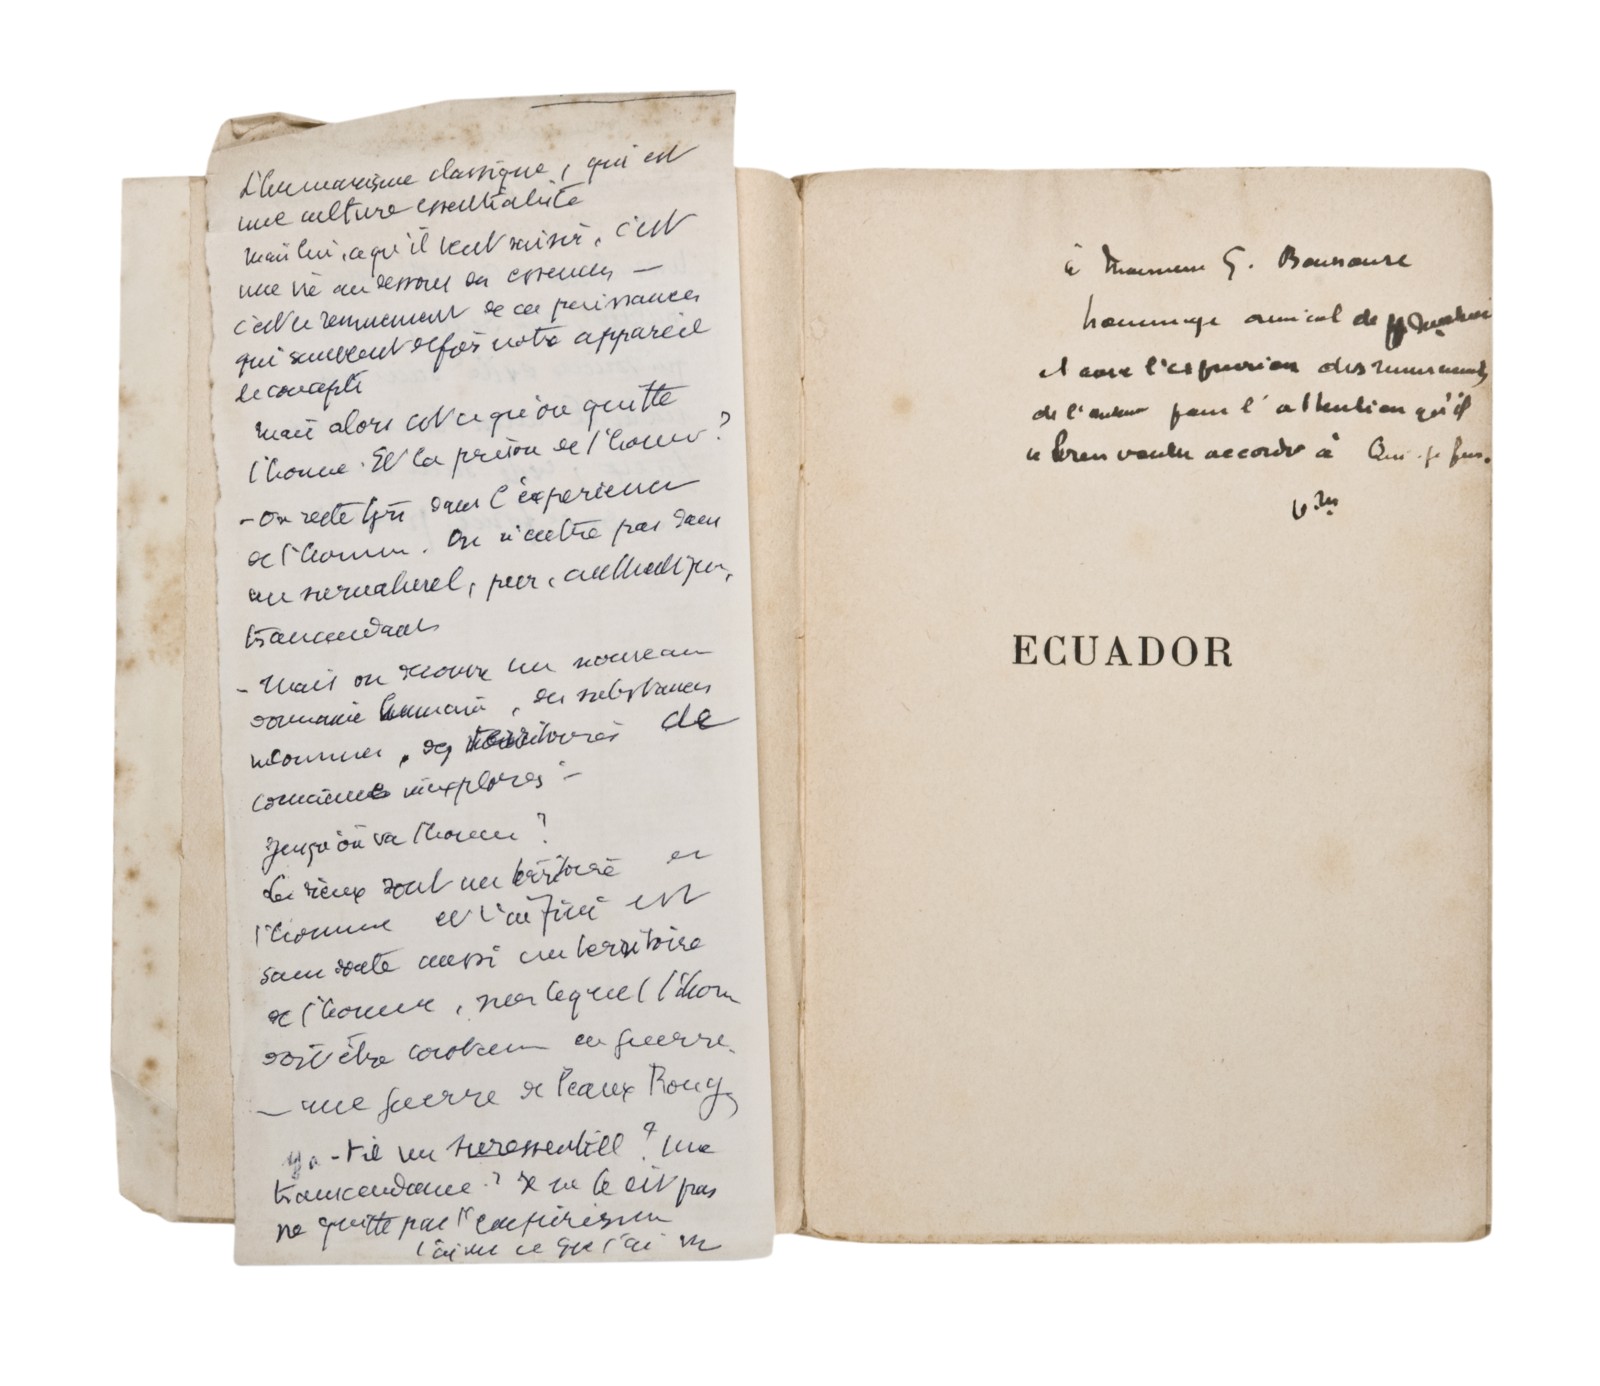 L'humanisme classique, qui est
une culture essentialiste
mais lui, ce qu'il veut saisir, c'est
une vie au dessous des essences —
c'est le remuement de ces puissances
qui semblent défier notre appareil
de concepts
mais alors est ce qu'on quitte
l'homme. Et la prison de l'homme ?
- On reste dans l'expérience
de l'homme. On n'entre pas dans
un surnaturel, pur, authentique,
transcendant
- Mais on découvre un nouveau
domaine humain, des substances
inconnues, des territoires de
conscience inexplorés -
Jusqu'où va l'homme ?
Les dieux sont un territoire de
l'homme et l'infini est
sans doute aussi un territoire
de l'homme, sur lequel l'homme
doit être constamment en guerre.
— une guerre de Peaux Rouges
Y a-t-il un suressentiel ? une
transcendance ? Je ne le dit pas
ne quitte pas l'empirisme
j'ai vu ce que j'ai vu
à Monsieur G. Bounoure
hommage amical de H Michaux
et avec l'expression des remerciements
de l'auteur pour l'attention qu'il
a bien voulu accorder à Qui je fus.
ECUADOR